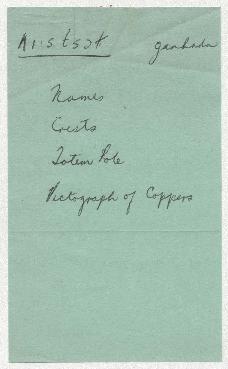 ganhada
Names
Crests
Totem Pole
Pictograph of Coppers